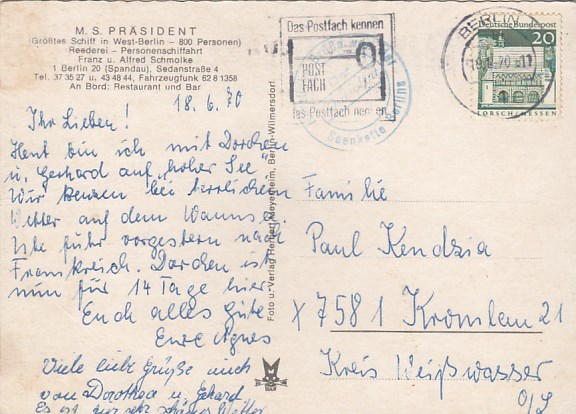 M. S. PRÄSIDENT
(Größtes Schiff in West-Berlin – 800 Personen)
Reederei – Personenschiffahrt
Franz u. Alfred Schmolke
1 Berlin 20 (Spandau), Sedanstraße 4
Tel. 37 35 27 u. 43 48 44, Fahrzeugfunk 62 8 1358
An Bord: Restaurant und Bar
18.6.70
Ihr Lieben!
Heut bin ich mit Dorchen
u. Gerhard auf „hoher See".
Wir kreuzen bei herrlichem
Wetter auf dem Wannsee.
Ute fuhr vorgestern nach
Frankreich. Dorchen ist
nun für 14 Tage hier.
Euch alles Gute
Eure Agnes
Viele liebe Grüße auch
von Dorothea u. Gerhard
Es ist zur sehr schönes Wetter
Foto u. Verlag Herbert Meyerheim, Berlin-Wilmersdorf
Das Postfach kennen
POST
FACH
das Postfach nennen
Seenkette Berlins
BERLIN
19.6.70
Deutsche Bundespost
20
LORSCH/HESSEN
Familie
Paul Kendzia
x 7581 Kromlau 21
Kreis Weißwasser
O/L